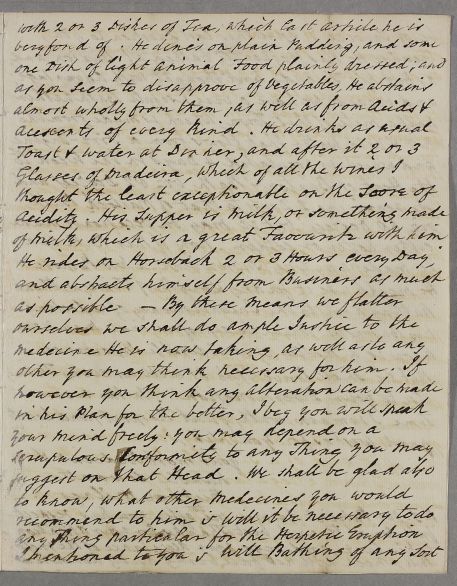 with 2 or 3 Dishes of Tea, which last article he is
very fond of. He dines on plain Pudding, and some
one Dish of light animal Food plainly dressed; and
as you seem to disapprove of Vegetables, He abstains
almost wholly from them, as well as from Acids &
Acescents of every Kind. He drinks as usual
Toast & water at Dinner, and after it 2 or 3
Glasses of Madeira, which of all the wines I
thought the least exceptionable on the Score of
Acidity. His Supper is Milk, or something made
of Milk, which is a great Favourite with him.
He rides on Horseback 2 or 3 Hours every Day,
and abstracts himself from Business as much
as possible — By these means we flatter
ourselves we shall do ample Justice to the
medecine He is now taking, as well as to any
other you may think necessary for him. If
however you think any alteration can be made
in his Plan for the better, I beg you will speak
your mind freely: you may depend on a
scrupulous Conformity to any Thing you may
suggest on that Head. We shall be glad also
to know, what other medecines you would
recommend to him & will it be necessary to do
any thing particular for the Herpetic Eruption
I mentioned to you & will Bathing of any sort